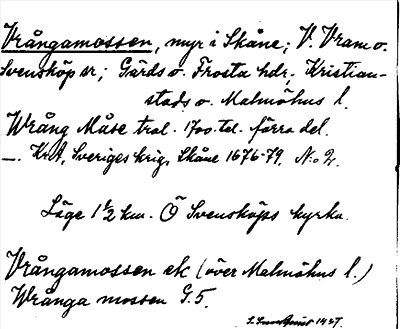 Vrångamossen, myr i Skåne; V. Vram o.
Svensköp sr; Gärds o. Frosta hdr; Kristian-
stads o. Malmöhus l.
Wrång Måse trol. 1700-tal. förra del.
—. KrA, Sveriges krig, Skåne 1676-79. N:o 2.
Läge 1 1/2 km. Ö Svensköps kyrka.
Vrångamossen ek (över Malmöhus l.)
Wrånga mossen G.5.
1927.